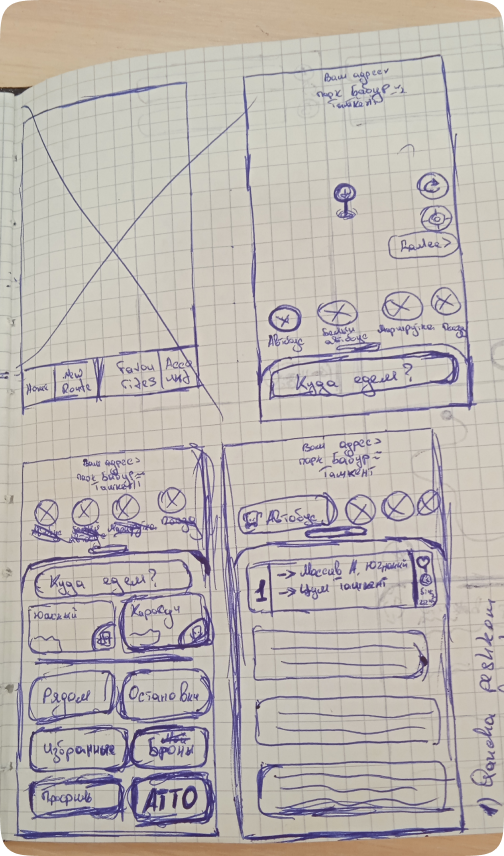 Home
New
Route
Favou
rites
Acco
und
Ваш адрес>
парк Бабур
Ташкент
Далее>
Автобус
автобус
Маршрутка
Поезд
Куда едем?
Ваш адрес>
парк Бабур
Ташкент
Куда едем?
Южный
Каракуч
Рядом
Остановки
Избранные
Броны
Профиль
АТТО
Ваш адрес>
парк Бабур
Ташкент
Автобус
1
→ Массив А, Южный
→ Цум Ташкент
1)